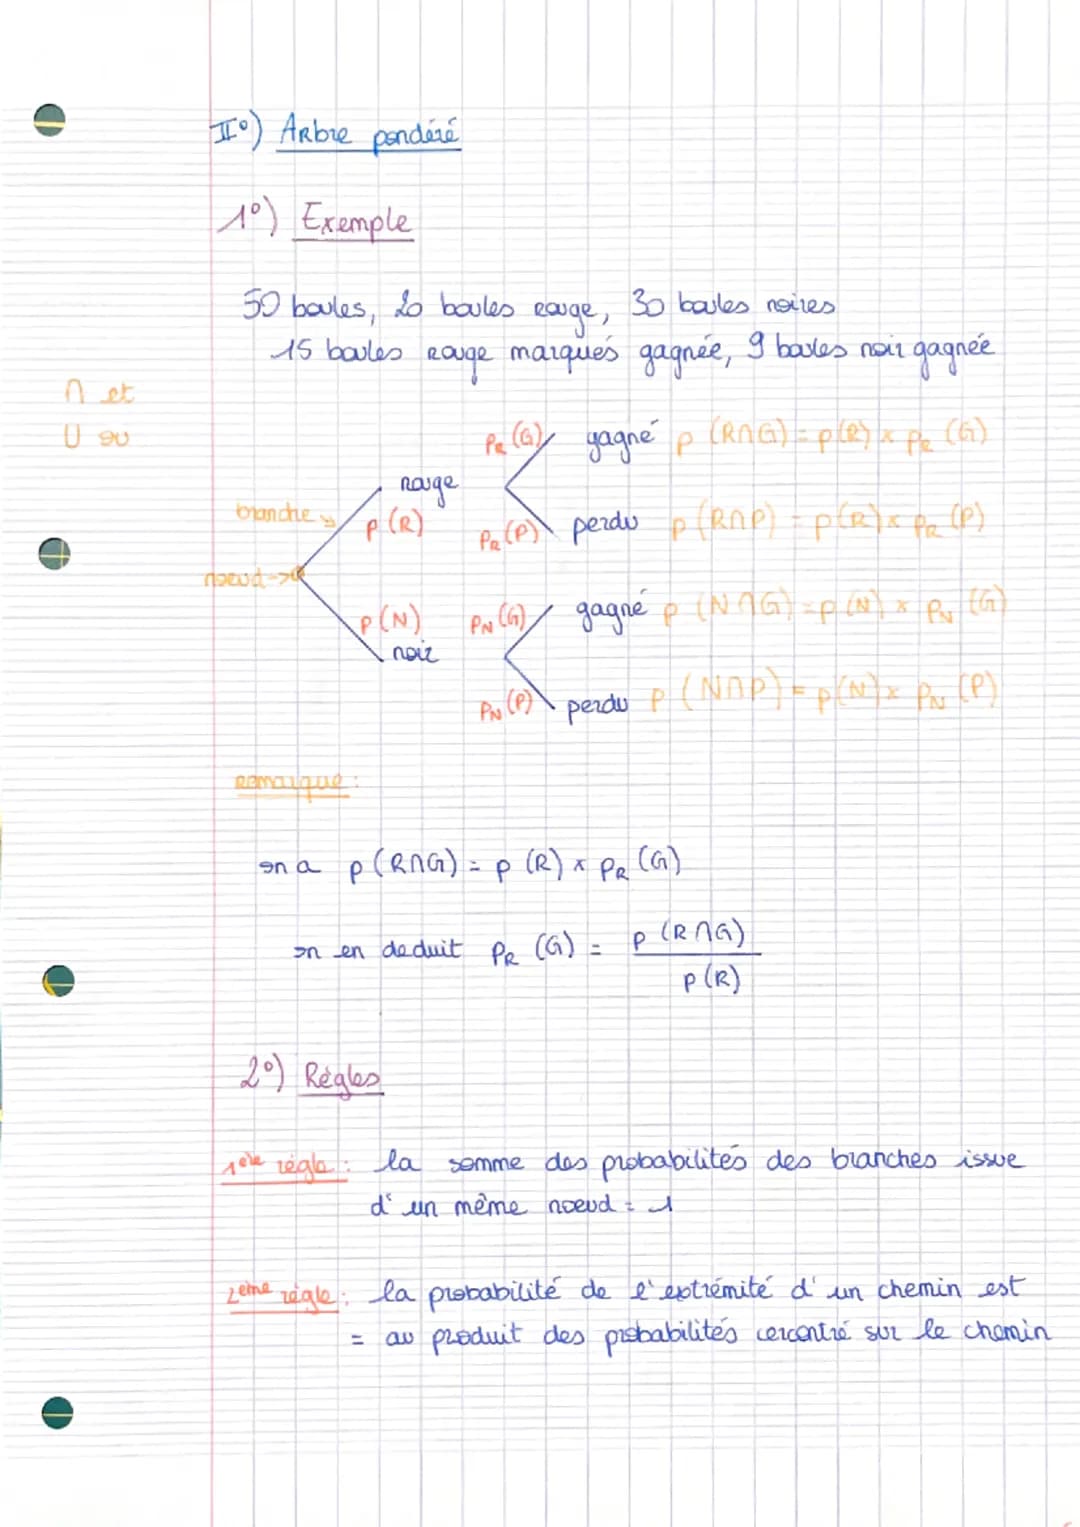 II°) Arbre pondéré
1°) Exemple
50 boules, 20 boules rouge, 30 boules noires
15 boules rouge marqués gagnée, 9 boules noir gagnée
∩ et
U ou
pR (G) gagné p (R∩G) = p(R) x pR (G)
rouge
branche p (R)
pR (P) perdu p (R∩P) = p(R) x pR (P)
noeud ->
p (N) pN (G) gagné p (N∩G) = p (N) x pN (G)
noir
pN (P) perdu p (N∩P) = p(N) x pN (P)
remarque :
on a p (R∩G) = p (R) x pR (G)
on en deduit pR (G) = p (R∩G)
p (R)
2°) Règles
1ère règle : la somme des probabilités des branches issue
d'un même noeud = 1
2ème règle : la probabilité de l'extrémité d'un chemin est
= au produit des probabilités cercontré sur le chemin